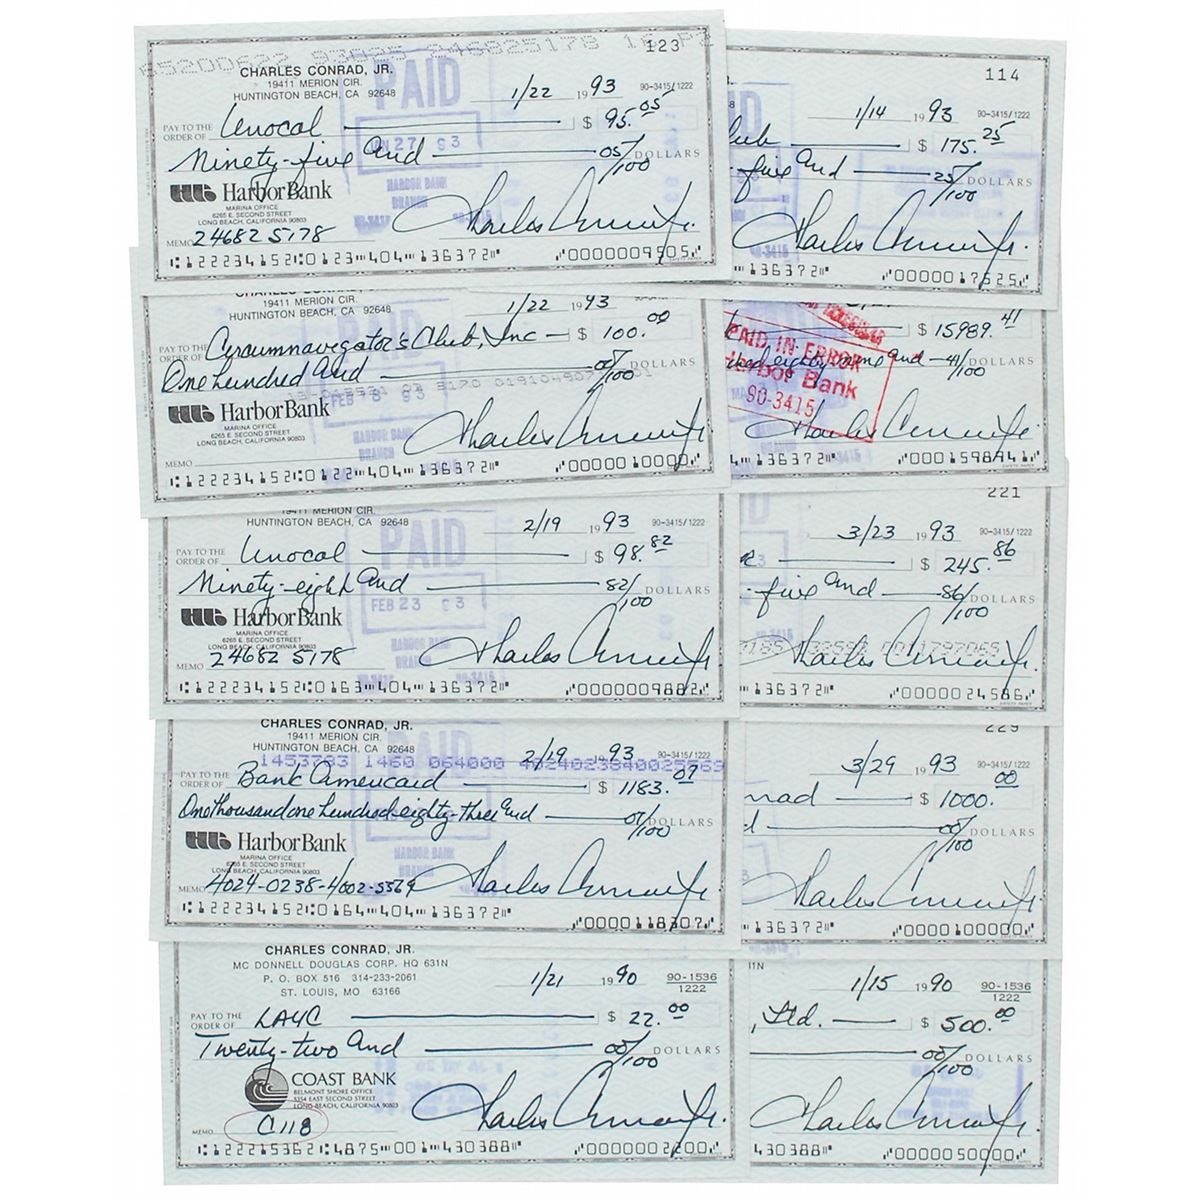 85200622 93025 246825178
123
CHARLES CONRAD, JR.
19411 MERION CIR.
HUNTINGTON BEACH, CA 92648
PAID
1/22 1993
90-3415/1222
PAY TO THE ORDER OF Unocal $ 95.05
JAN 27 93
Ninety-five and 05/100 DOLLARS
HarborBank
MARINA OFFICE
6265 E. SECOND STREET
LONG BEACH, CALIFORNIA 90803
HARBOR BANK
BRANCH
90-3415
MEMO 24682 5178
Charles Conrad Jr.
122234152 0123 404 136372 0000009505
114
1/14 1993
90-3415/1222
$ 175.25
five and 25/100 DOLLARS
Charles Conrad Jr.
136372 0000017525
CHARLES CONRAD, JR.
19411 MERION CIR.
HUNTINGTON BEACH, CA 92648
1/22 1993
PAY TO THE ORDER OF Circumnavigator's Club, Inc $ 100.00
One hundred and 00/100 DOLLARS
FEB 8 93
HarborBank
MARINA OFFICE
6265 E. SECOND STREET
LONG BEACH, CALIFORNIA 90803
HARBOR BANK
BRANCH
MEMO
Charles Conrad Jr.
122234152 0122 404 136372 0000010000
$ 15989.41
PAID IN ERROR
Harbor Bank
90-3415
eighty nine and 41/100 DOLLARS
Charles Conrad Jr.
136372 0001598941
19411 MERION CIR.
HUNTINGTON BEACH, CA 92648
PAID
2/19 1993
90-3415/1222
PAY TO THE ORDER OF Unocal $ 98.82
Ninety-eight and 82/100 DOLLARS
FEB 23 93
HarborBank
MARINA OFFICE
6265 E. SECOND STREET
LONG BEACH, CALIFORNIA 90803
HARBOR BANK
BRANCH
90-3415
MEMO 24682 5178
Charles Conrad Jr.
122234152 0163 404 136372 0000009882
221
3/23 1993
90-3415/1222
$ 245.86
five and 86/100 DOLLARS
Charles Conrad Jr.
136372 0000024586
CHARLES CONRAD, JR.
19411 MERION CIR.
HUNTINGTON BEACH, CA 92648
PAID
2/19 1993
90-3415/1222
1453783 1460 064000 4024023840025569
PAY TO THE ORDER OF Bank Americard $ 1183.07
One thousand one hundred eighty-three and 07/100 DOLLARS
HarborBank
MARINA OFFICE
6265 E. SECOND STREET
LONG BEACH, CALIFORNIA 90803
HARBOR BANK
BRANCH
MEMO 4024-0238-4002-5569
Charles Conrad Jr.
122234152 0164 404 136372 0000118307
229
3/29 1993
90-3415/1222
$ 1000.00
00/100 DOLLARS
Charles Conrad Jr.
136372 0000100000
CHARLES CONRAD, JR.
MC DONNELL DOUGLAS CORP. HQ 631N
P. O. BOX 516 314-233-2061
ST. LOUIS, MO 63166
1/21 1990
90-1536
1222
PAY TO THE ORDER OF LAYC $ 22.00
Twenty-two and 00/100 DOLLARS
COAST BANK
BELMONT SHORE OFFICE
5354 EAST SECOND STREET
LONG BEACH, CALIFORNIA 90803
MEMO C118
Charles Conrad Jr.
122215362 4875 001 430388 0000002200
1/15 1990
90-1536
1222
, Ltd. $ 500.00
00/100 DOLLARS
Charles Conrad Jr.
430388 0000050000